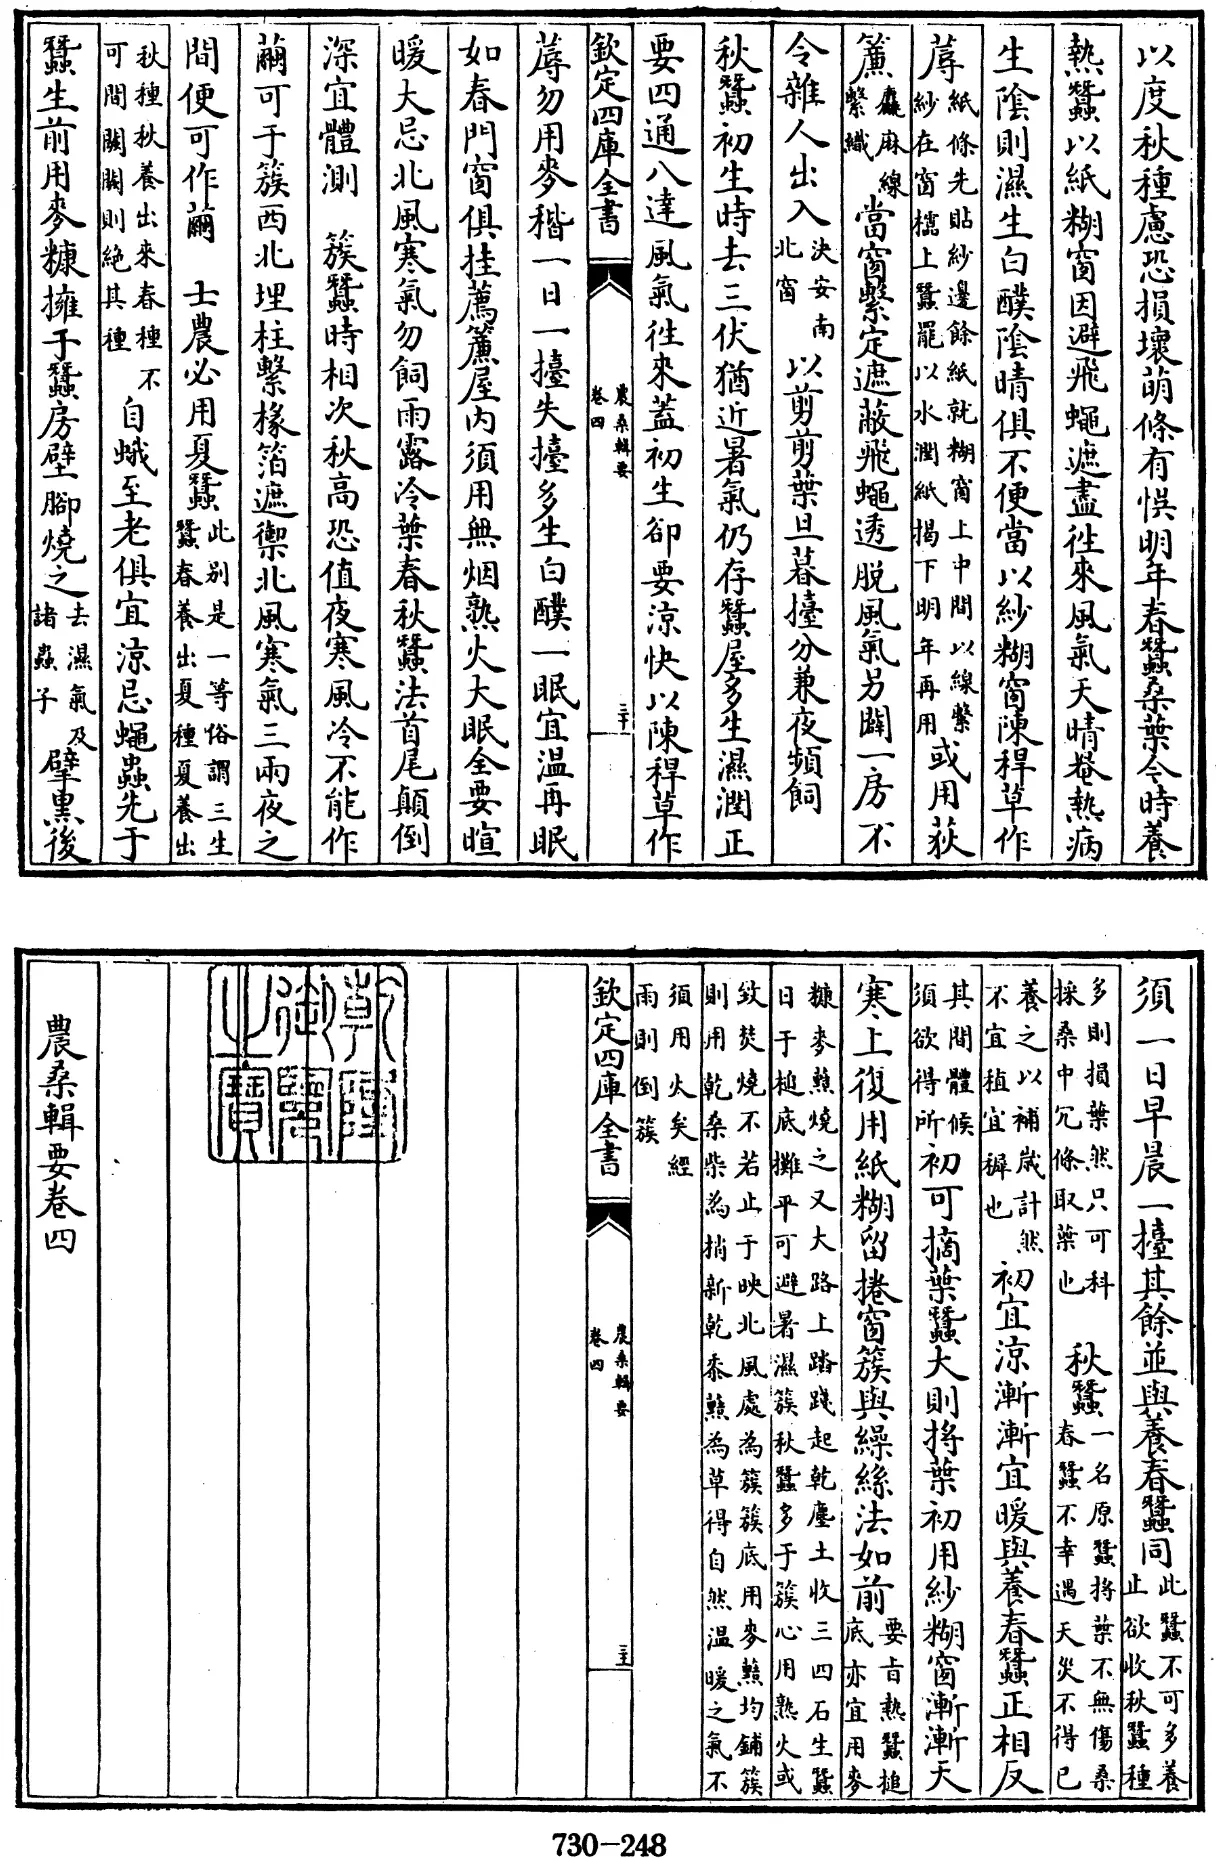 以度秋種慮恐損壞萌條有悞明年春蠶桑葉今時養
熱蠶以紙糊窗因避飛蠅遮盡徃來風氣天晴菴熱病
生陰則濕生白醭陰晴俱不便當以紗糊窗陳稈草作
蓐紙條先貼紗邊餘紙就糊窗上中間以線繫紗在窗櫺上蠶罷以水潤紙揭下明年再用或用荻
簾麄麻線繫織當窗繫定遮蔽飛蠅透脫風氣另闢一房不
令雜人出入決安南北窗以剪剪葉旦暮擡分兼夜頻飼
秋蠶初生時去三伏猶近暑氣仍存蠶屋多生濕潤正
要四通八達風氣徃來蓋初生卻要涼快以陳稈草作
欽定四庫全書 農桑輯要 卷四 三十
蓐勿用麥稭一日一擡失擡多生白醭一眠宜温再眠
如春門窗俱挂薦簾屋内須用無烟熟火大眠全要暄
暖大忌北風寒氣勿飼雨露冷葉春秋蠶法首尾顛倒
深宜體測 簇蠶時相次秋高恐值夜寒風冷不能作
繭可于簇西北埋柱繫椽箔遮禦北風寒氣三兩夜之
間便可作繭 士農必用夏蠶此别是一等俗謂三生蠶春養出夏種夏養出
秋種秋養出來春種不可間闕闕則絶其種自蛾至老俱宜涼忌蠅蟲先于
蠶生前用麥糠擁于蠶房壁腳燒之去濕氣及諸蟲子擘黑後
須一日早晨一擡其餘並與養春蠶同此蠶不可多養止欲收秋蠶種
多則損葉然只可科採桑中冗條取葉也 秋蠶一名原蠶将葉不無傷桑春蠶不幸遇天災不得已
養之以補歲計然不宜稙宜穉也初宜涼漸漸宜暖與養春蠶正相反
其間體候須欲得所初可摘葉蠶大則捋葉初用紗糊窗漸漸天
寒上復用紙糊留捲窗簇與繰絲法如前要旨熱蠶槌底亦宜用麥
糠麥䴬燒之又大路上踏踐起乾塵土收三四石生蠶日于槌底攤平可避暑濕簇秋蠶多于簇心用熟火或
致焚燒不若止于映北風處為簇簇底用麥䴬均鋪簇則用乾桑柴為梢新乾黍䴬為草得自然温暖之氣不
須用火矣經雨則倒簇
欽定四庫全書 農桑輯要 卷四 三十一
乾隆御覽之寶
農桑輯要卷四
730-248